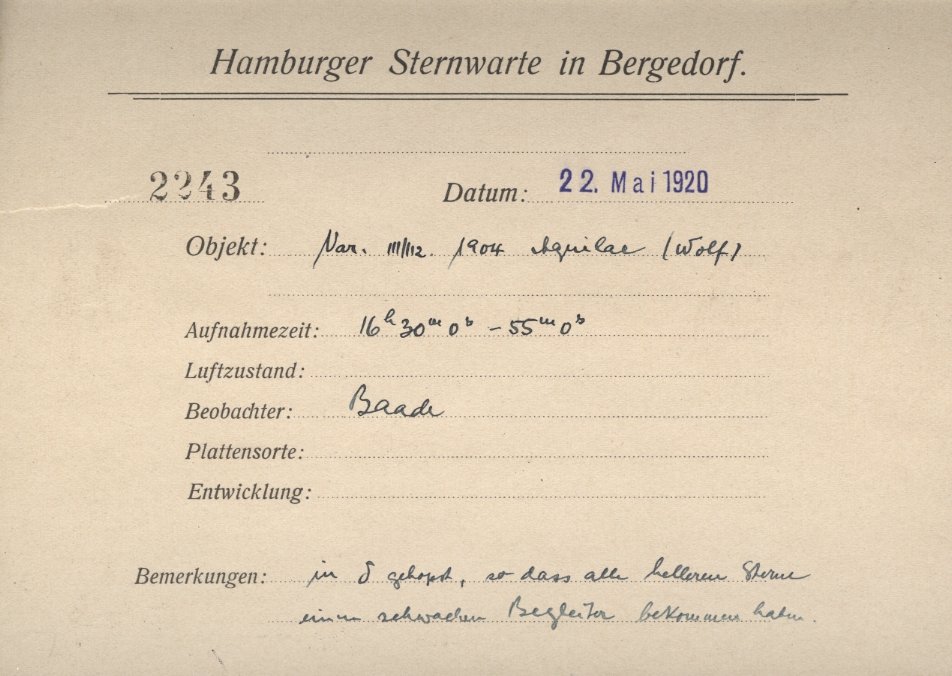 Hamburger Sternwarte in Bergedorf.
2243 Datum: 22. Mai 1920
Objekt: Var. 1904 Aquilae (Wolf)
Aufnahmezeit: 16h 30m 0s - 55m 0s
Luftzustand:
Beobachter: Baade
Plattensorte:
Entwicklung:
Bemerkungen: in δ gehopst, so dass alle helleren Sterne
einen schwachen Begleiter bekommen haben.